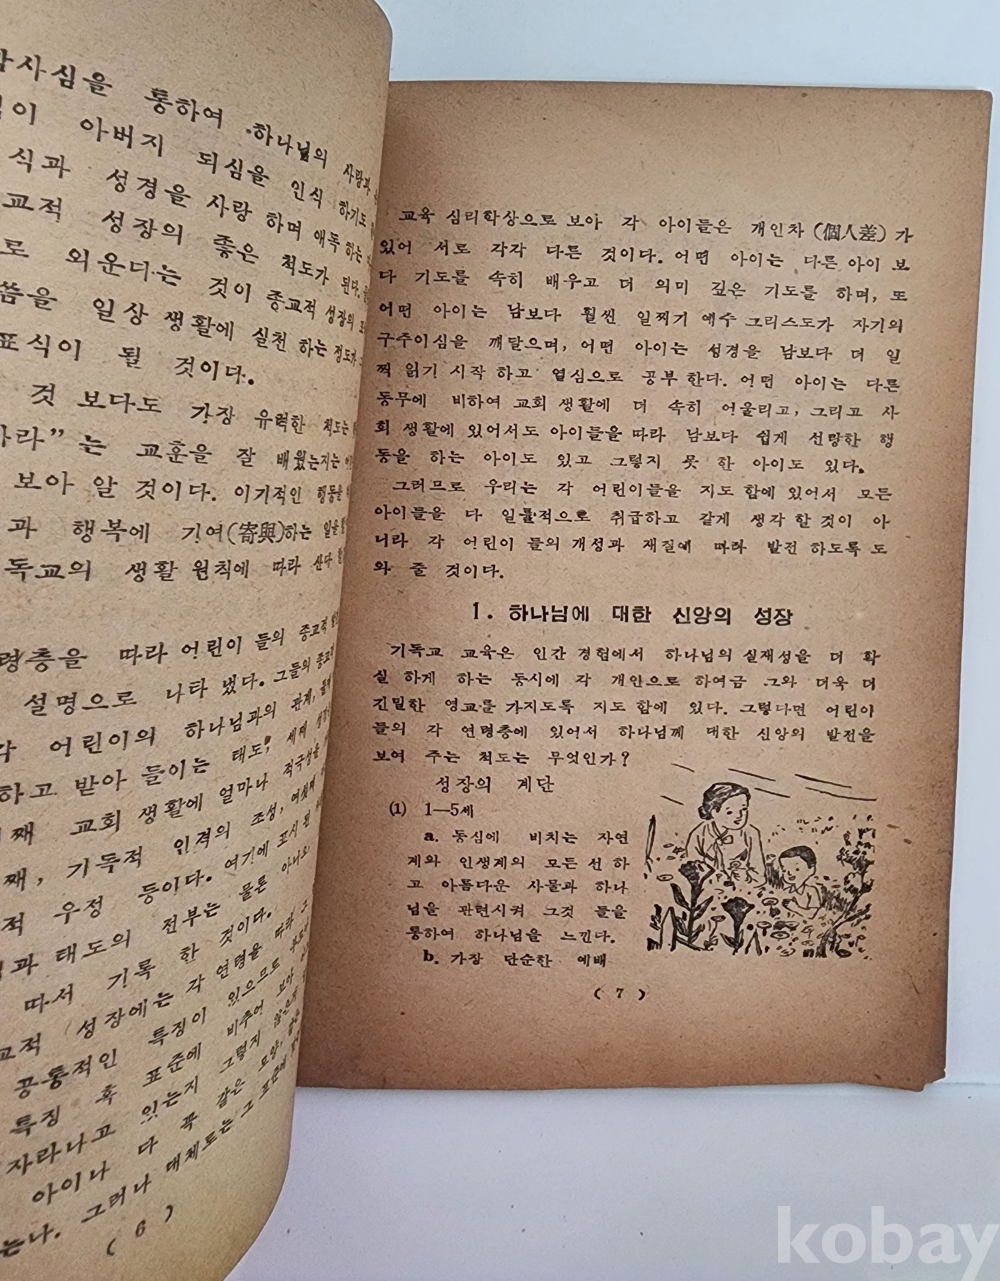 감사심을 통하여 하나님의 사랑과
이 아버지 되심을 인식 하기도
식과 성경을 사랑 하며 애독 하는
교적 성장의 좋은 척도가 된다.
로 외운다는 것이 종교적 성장의
씀을 일상 생활에 실천 하는 정도가
표식이 될 것이다.
것 보다도 가장 유력한 척도는
라” 는 교훈을 잘 배웠는지는
보아 알 것이다. 이기적인 행동을
과 행복에 기여(寄與)하는 일을
독교의 생활 원칙에 따라 산다
령층을 따라 어린이 들의 종교적
설명으로 나타 냈다. 그들의 종교
각 어린이의 하나님과의 관계, 둘째
하고 받아 들이는 태도, 세째
째 교회 생활에 얼마나 적극성을
째, 기독적 인격의 조성, 여섯째
적 우정 등이다. 여기에 표시 된
과 태도의 전부는 물론 아니요
따서 기록 한 것이다.
교적 성장에는 각 연령을 따라
공통적인 특징이 있으므로
특징 혹 표준에 비추어 보아
자라나고 있는지 그렇지 않은지
아이나 다 꼭 같은 모양,
는다. 그러나 대체로는 그 표준에
( 6 )
교육 심리학상으로 보아 각 아이들은 개인차 (個人差) 가
있어 서로 각각 다른 것이다. 어떤 아이는 다른 아이 보
다 기도를 속히 배우고 더 의미 깊은 기도를 하며, 또
어떤 아이는 남보다 훨씬 일찍기 예수 그리스도가 자기의
구주이심을 깨달으며, 어떤 아이는 성경을 남보다 더 일
찍 읽기 시작 하고 열심으로 공부 한다. 어떤 아이는 다른
동무에 비하여 교회 생활에 더 속히 어울리고, 그리고 사
회 생활에 있어서도 아이들을 따라 남보다 쉽게 선량한 행
동을 하는 아이도 있고 그렇지 못 한 아이도 있다.
그러므로 우리는 각 어린이들을 지도 함에 있어서 모든
아이들을 다 일률적으로 취급하고 같게 생각 할 것이 아
니라 각 어린이 들의 개성과 재질에 따라 발전 하도록 도
와 줄 것이다.
1. 하나님에 대한 신앙의 성장
기독교 교육은 인간 경험에서 하나님의 실재성을 더 확
실 하게 하는 동시에 각 개인으로 하여금 그와 더욱 더
긴밀한 영교를 가지도록 지도 함에 있다. 그렇다면 어린이
들의 각 연령층에 있어서 하나님께 대한 신앙의 발전을
보여 주는 척도는 무엇인가?
성장의 계단
(1) 1—5세
a. 동심에 비치는 자연
계와 인생계의 모든 선 하
고 아름다운 사물과 하나
님을 관련시켜 그것 들을
통하여 하나님을 느낀다.
b. 가장 단순한 예배
( 7 )
kobay